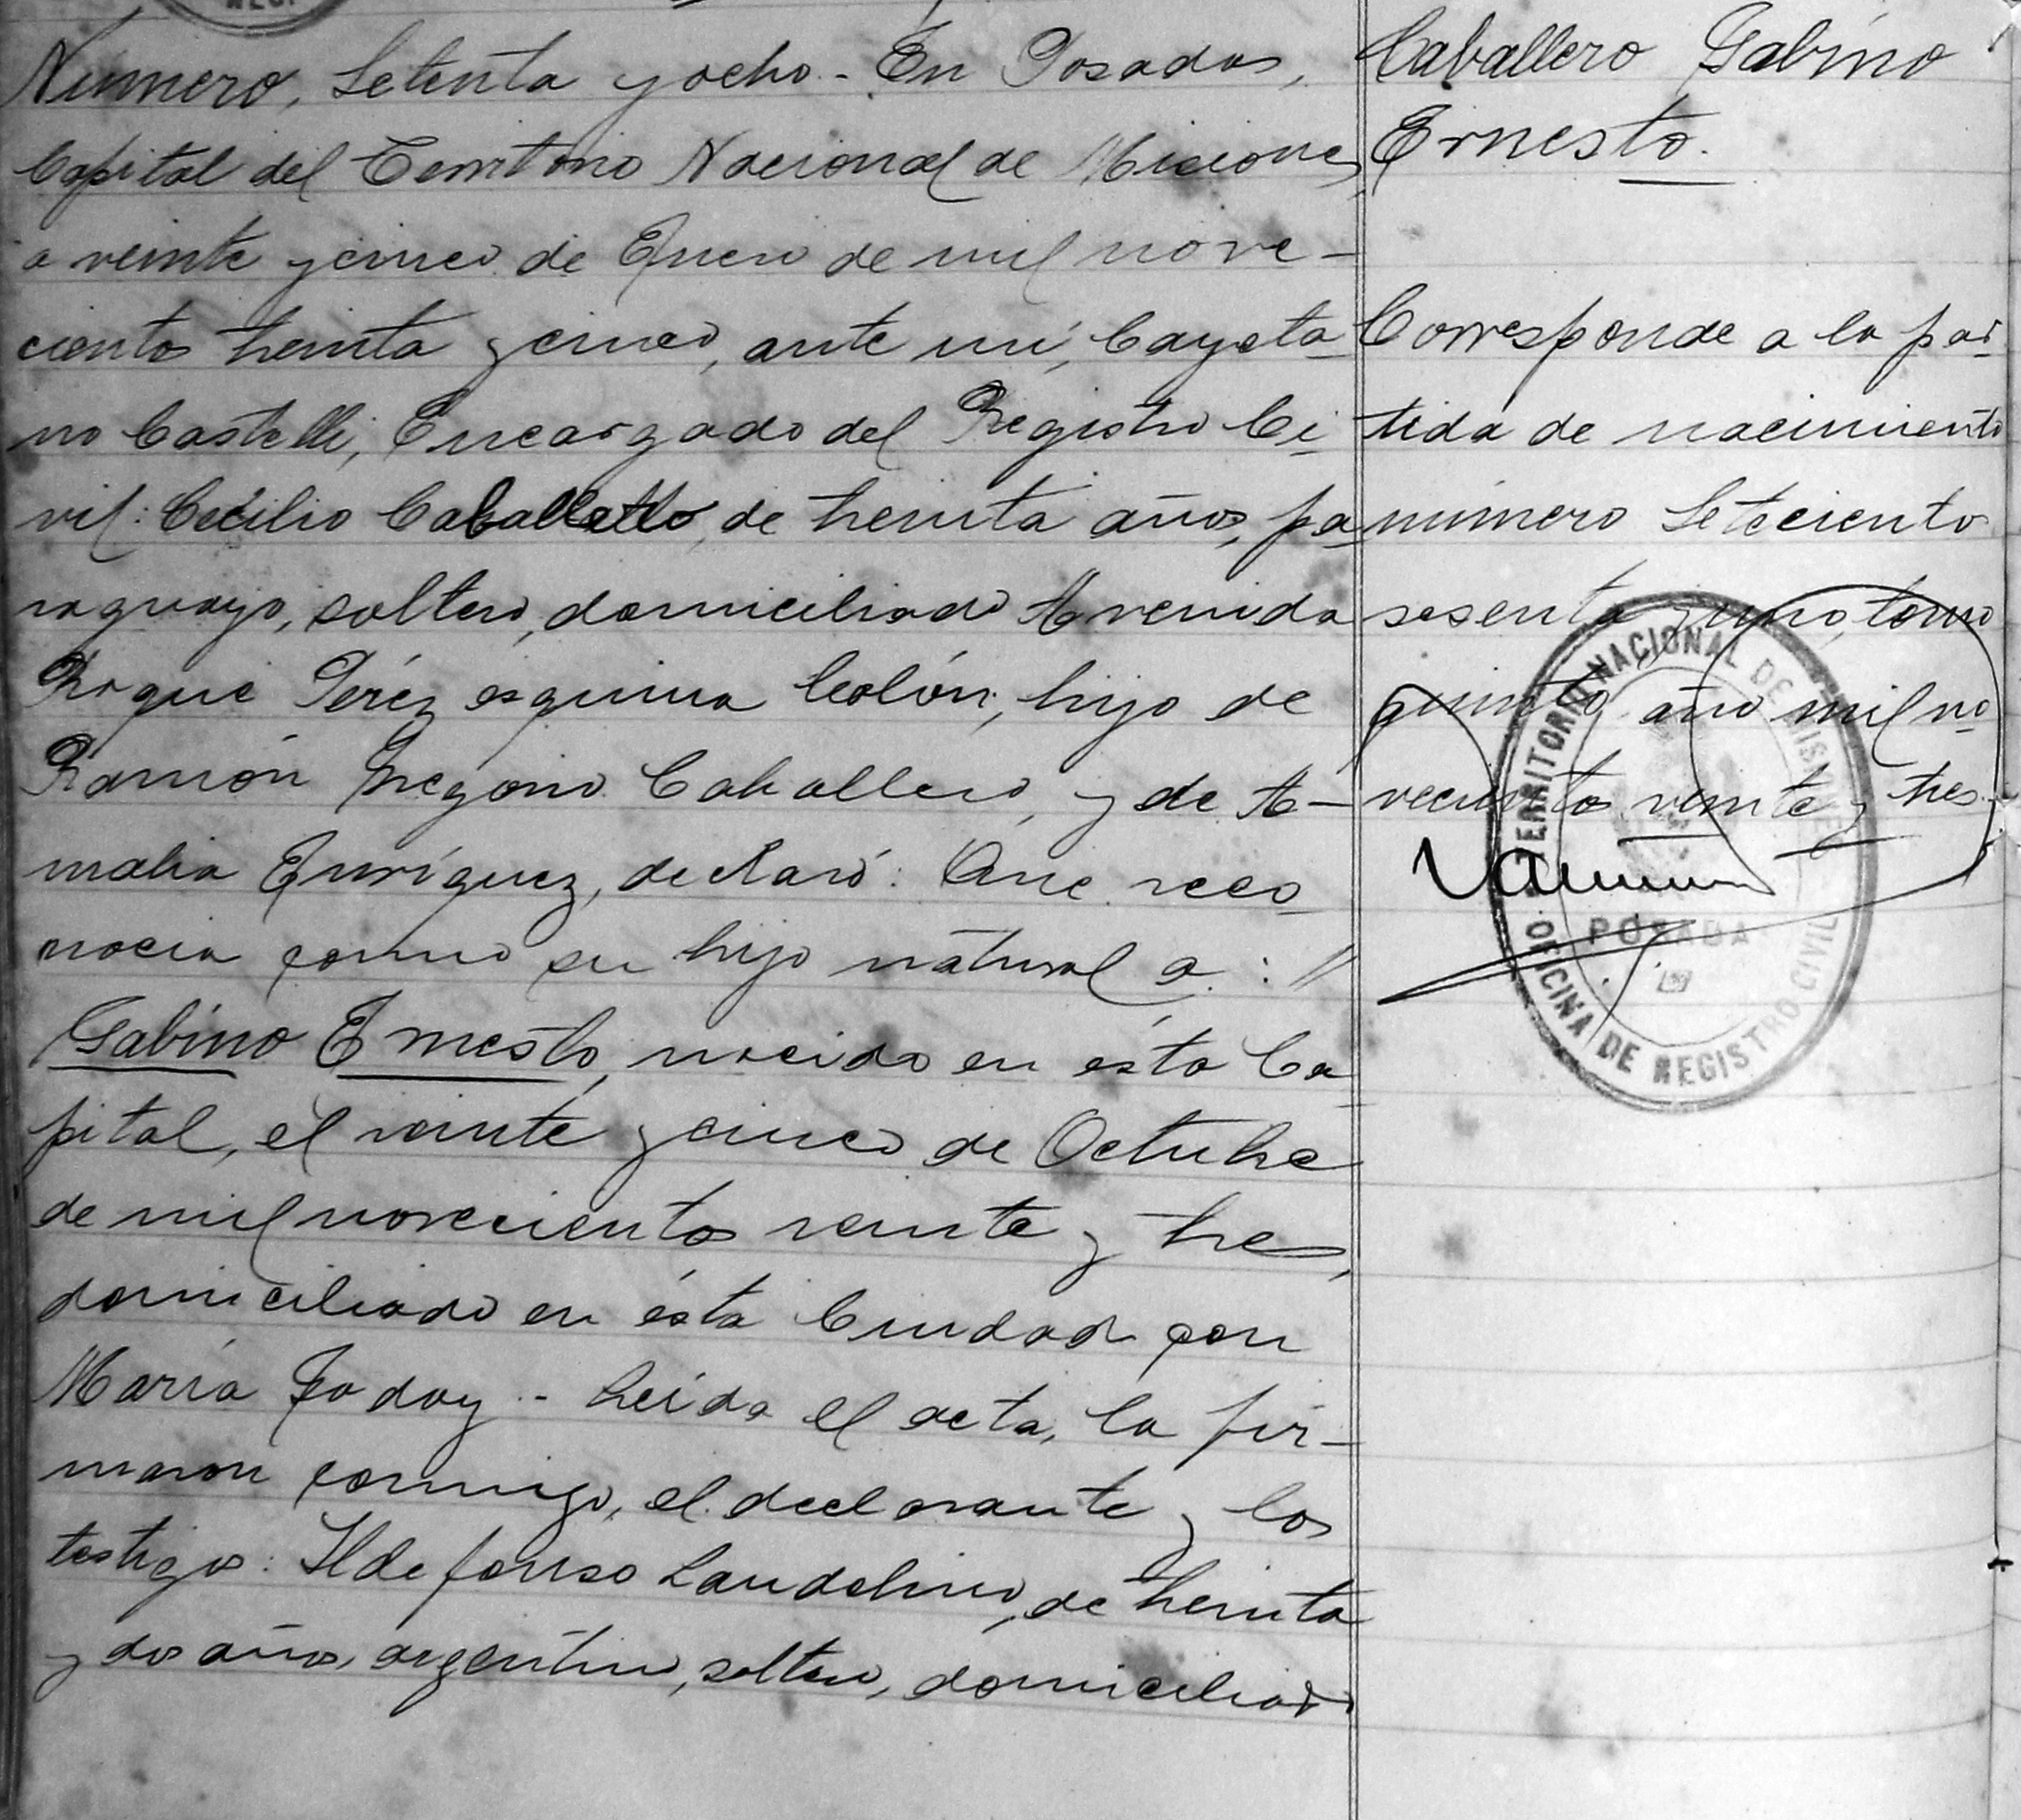 Número, Setenta y ocho.- En Posadas,
Capital del Territorio Nacional de Misiones,
a veinte y cinco de Enero de mil nove-
cientos treinta y cinco, ante mí, Cayeta-
no Castelli, Encargado del Registro Ci-
vil: Cecilio Caballero, de treinta años, pa-
raguayo, soltero, domiciliado Avenida
Roque Pérez esquina Colón, hijo de
Ramón Gregorio Caballero, y de A-
malia Enríquez, declaró: Que reco-
nocía como su hijo natural a: //
Gabino Ernesto, nacido en ésta Ca-
pital, el veinte y cinco de Octubre
de mil novecientos veinte y tres,
domiciliado en ésta Ciudad con
María Godoy.- Leída el acta, la fir-
maron conmigo, el declarante y los
testigos: Ildefonso Laudelino, de treinta
y dos años, argentino, soltero, domiciliado
Caballero Gabino
Ernesto.
Corresponde a la par-
tida de nacimiento
número Setecientos
sesenta y uno, tomo
quinto, año mil no-
vecientos veinte y tres.-
TERRITORIO NACIONAL DE MISIONES
POSADAS
OFICINA DE REGISTRO CIVIL